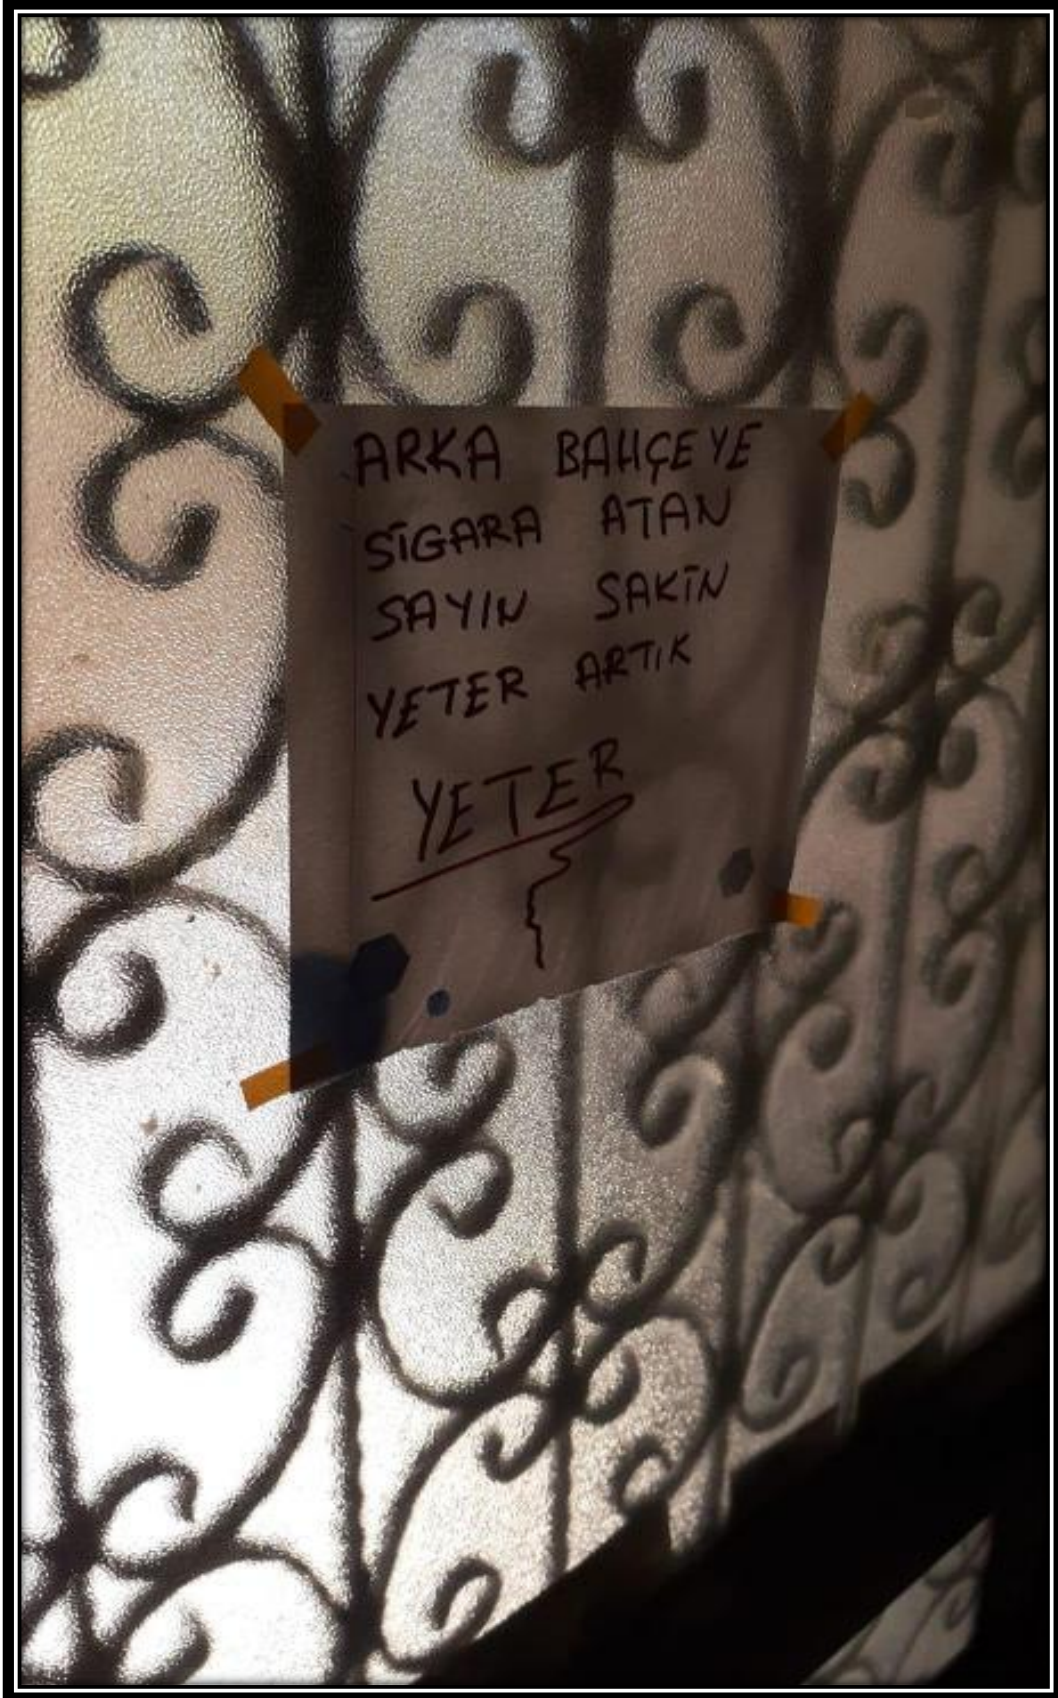 ARKA BAHÇEYE
SİGARA ATAN
SAYIN SAKİN
YETER ARTIK
YETER